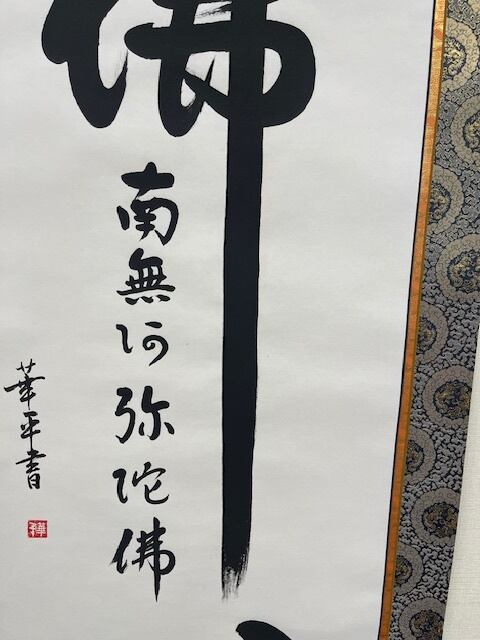 佛
南無阿弥陀佛
華平書